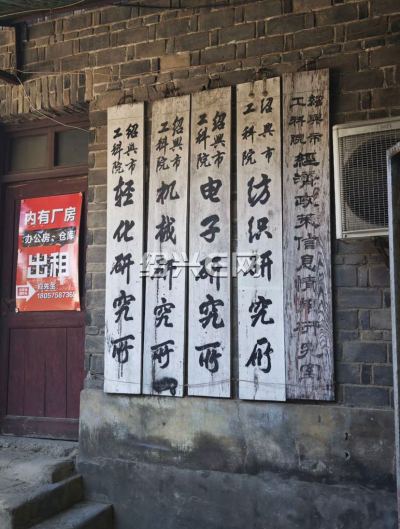 内有厂房
办公房、仓库
出租
何先生
18057587369
绍兴市
工科院
轻化研究所
绍兴市
工科院
机械研究所
绍兴市
工科院
电子研究所
绍兴市
工科院
纺织研究所
绍兴市
工科院
经济政策信息情报研究室
绍兴E网